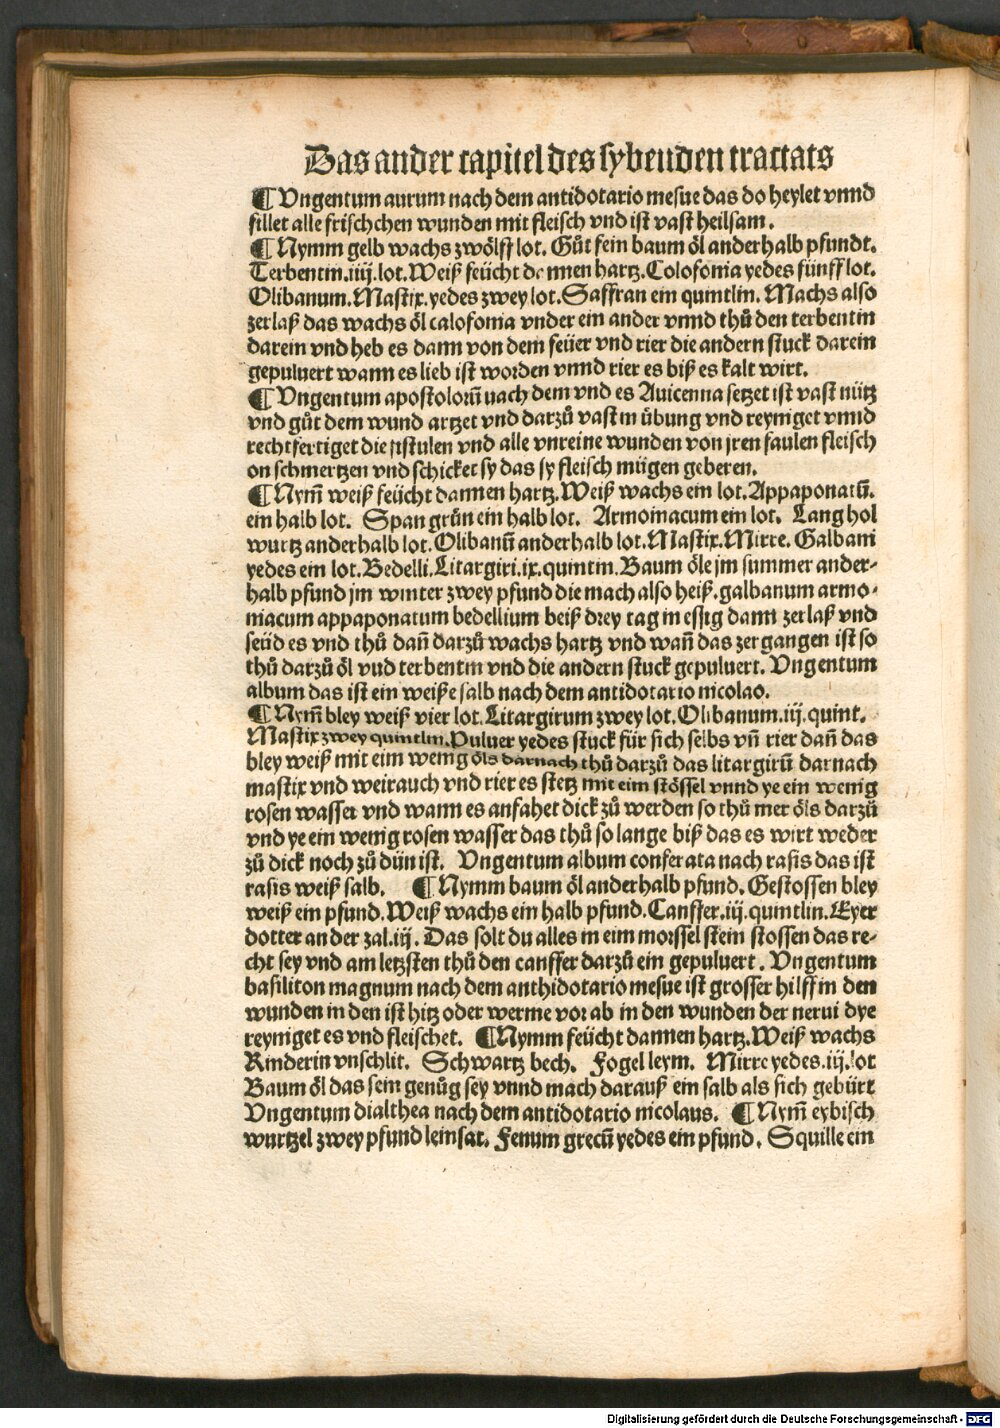 Das ander capitel des sybenden tractats
¶ Vngentum aurum nach dem antidotario mesue das do heylet vnnd
fillet alle frischchen wunden mit fleisch vnd ist vast heilsam.
¶ Nymm gelb wachs zwölff lot. Gůt fein baum öl anderhalb pfundt.
Terbentin.iiij.lot.Weiß feücht dannen hartz.Colofonia yedes fünff lot.
Olibanum.Mastix.yedes zwey lot.Saffran ein quintlin.Machs also
zerlaß das wachs öl calofonia vnder ein ander vnnd thů den terbentin
darein vnd heb es dann von dem feüer vnd rier die andern stuck darein
gepuluert wann es lieb ist worden vnnd rier es biß es kalt wirt.
¶ Vngentum apostoloruͫ nach dem vnd es Auicenna setzet ist vast nütz
vnd gůt dem wund artzet vnd darzů vast in übung vnd reyniget vnnd
rechtfertiget die fistulen vnd alle vnreine wunden von jren faulen fleisch
on schmertzen vnd schicket sy das sy fleisch mügen geberen.
¶ Nym̄ weiß feücht dannen hartz.Weiß wachs ein lot.Appaponatū.
ein halb lot. Span grün ein halb lot. Armoniacum ein lot. Lang hol
wurtz anderhalb lot.Olibanū anderhalb lot.Mastix.Mirre. Galbani
yedes ein lot.Bedelli.Litargiri.ix.quintin.Baum öle jm summer ander-
halb pfund jm winter zwey pfund die mach also heiß.galbanum armo-
niacum appaponatum bedellium beiß drey tag in essig dann zerlaß vnd
seüd es vnd thů dan̄ darzů wachs hartz vnd wan̄ das zergangen ist so
thů darzů öl vnd terbentin vnd die andern stuck gepuluert. Vngentum
album das ist ein weiße salb nach dem antidotario nicolao.
¶ Nym̄ bley weiß vier lot.Litargirum zwey lot.Olibanum.iij.quint.
Mastix zwey quintlin.Puluer yedes stuck für sich selbs vn̄ rier dan̄ das
bley weiß mit eim wenig öls darnach thů darzů das litargirū darnach
mastix vnd weirauch vnd rier es stetz mit eim stössel vnnd ye ein wenig
rosen wasser vnd wann es anfahet dick zů werden so thů mer öls darzů
vnd ye ein wenig rosen wasser das thů so lange biß das es wirt weder
zů dick noch zů dün ist. Vngentum album conferata nach rasis das ist
rasis weiß salb. ¶ Nymm baum öl anderhalb pfund. Gestossen bley
weiß ein pfund.Weiß wachs ein halb pfund.Canffer.iij.quintlin.Eyer
dotter an der zal.iij. Das solt du alles in eim morssel stein stossen das re-
cht sey vnd am letzsten thů den canffer darzů ein gepuluert. Vngentum
basiliton magnum nach dem anthidotario mesue ist grosser hilff in den
wunden in den ist hitz oder werme vorab in den wunden der nerui dye
reyniget es vnd fleischet. ¶ Nymm feücht dannen hartz.Weiß wachs
Rinderin vnschlit. Schwartz bech. Fogel leym. Mirre yedes.iij.lot
Baum öl das sein genůg sey vnnd mach darauß ein salb als sich gebürt
Vngentum dialthea nach dem antidotario nicolaus. ¶ Nym̄ eybisch
wurtzel zwey pfund leinsat. Fenum grecū yedes ein pfund. Squille ein
Digitalisierung gefördert durch die Deutsche Forschungsgemeinschaft - DFG